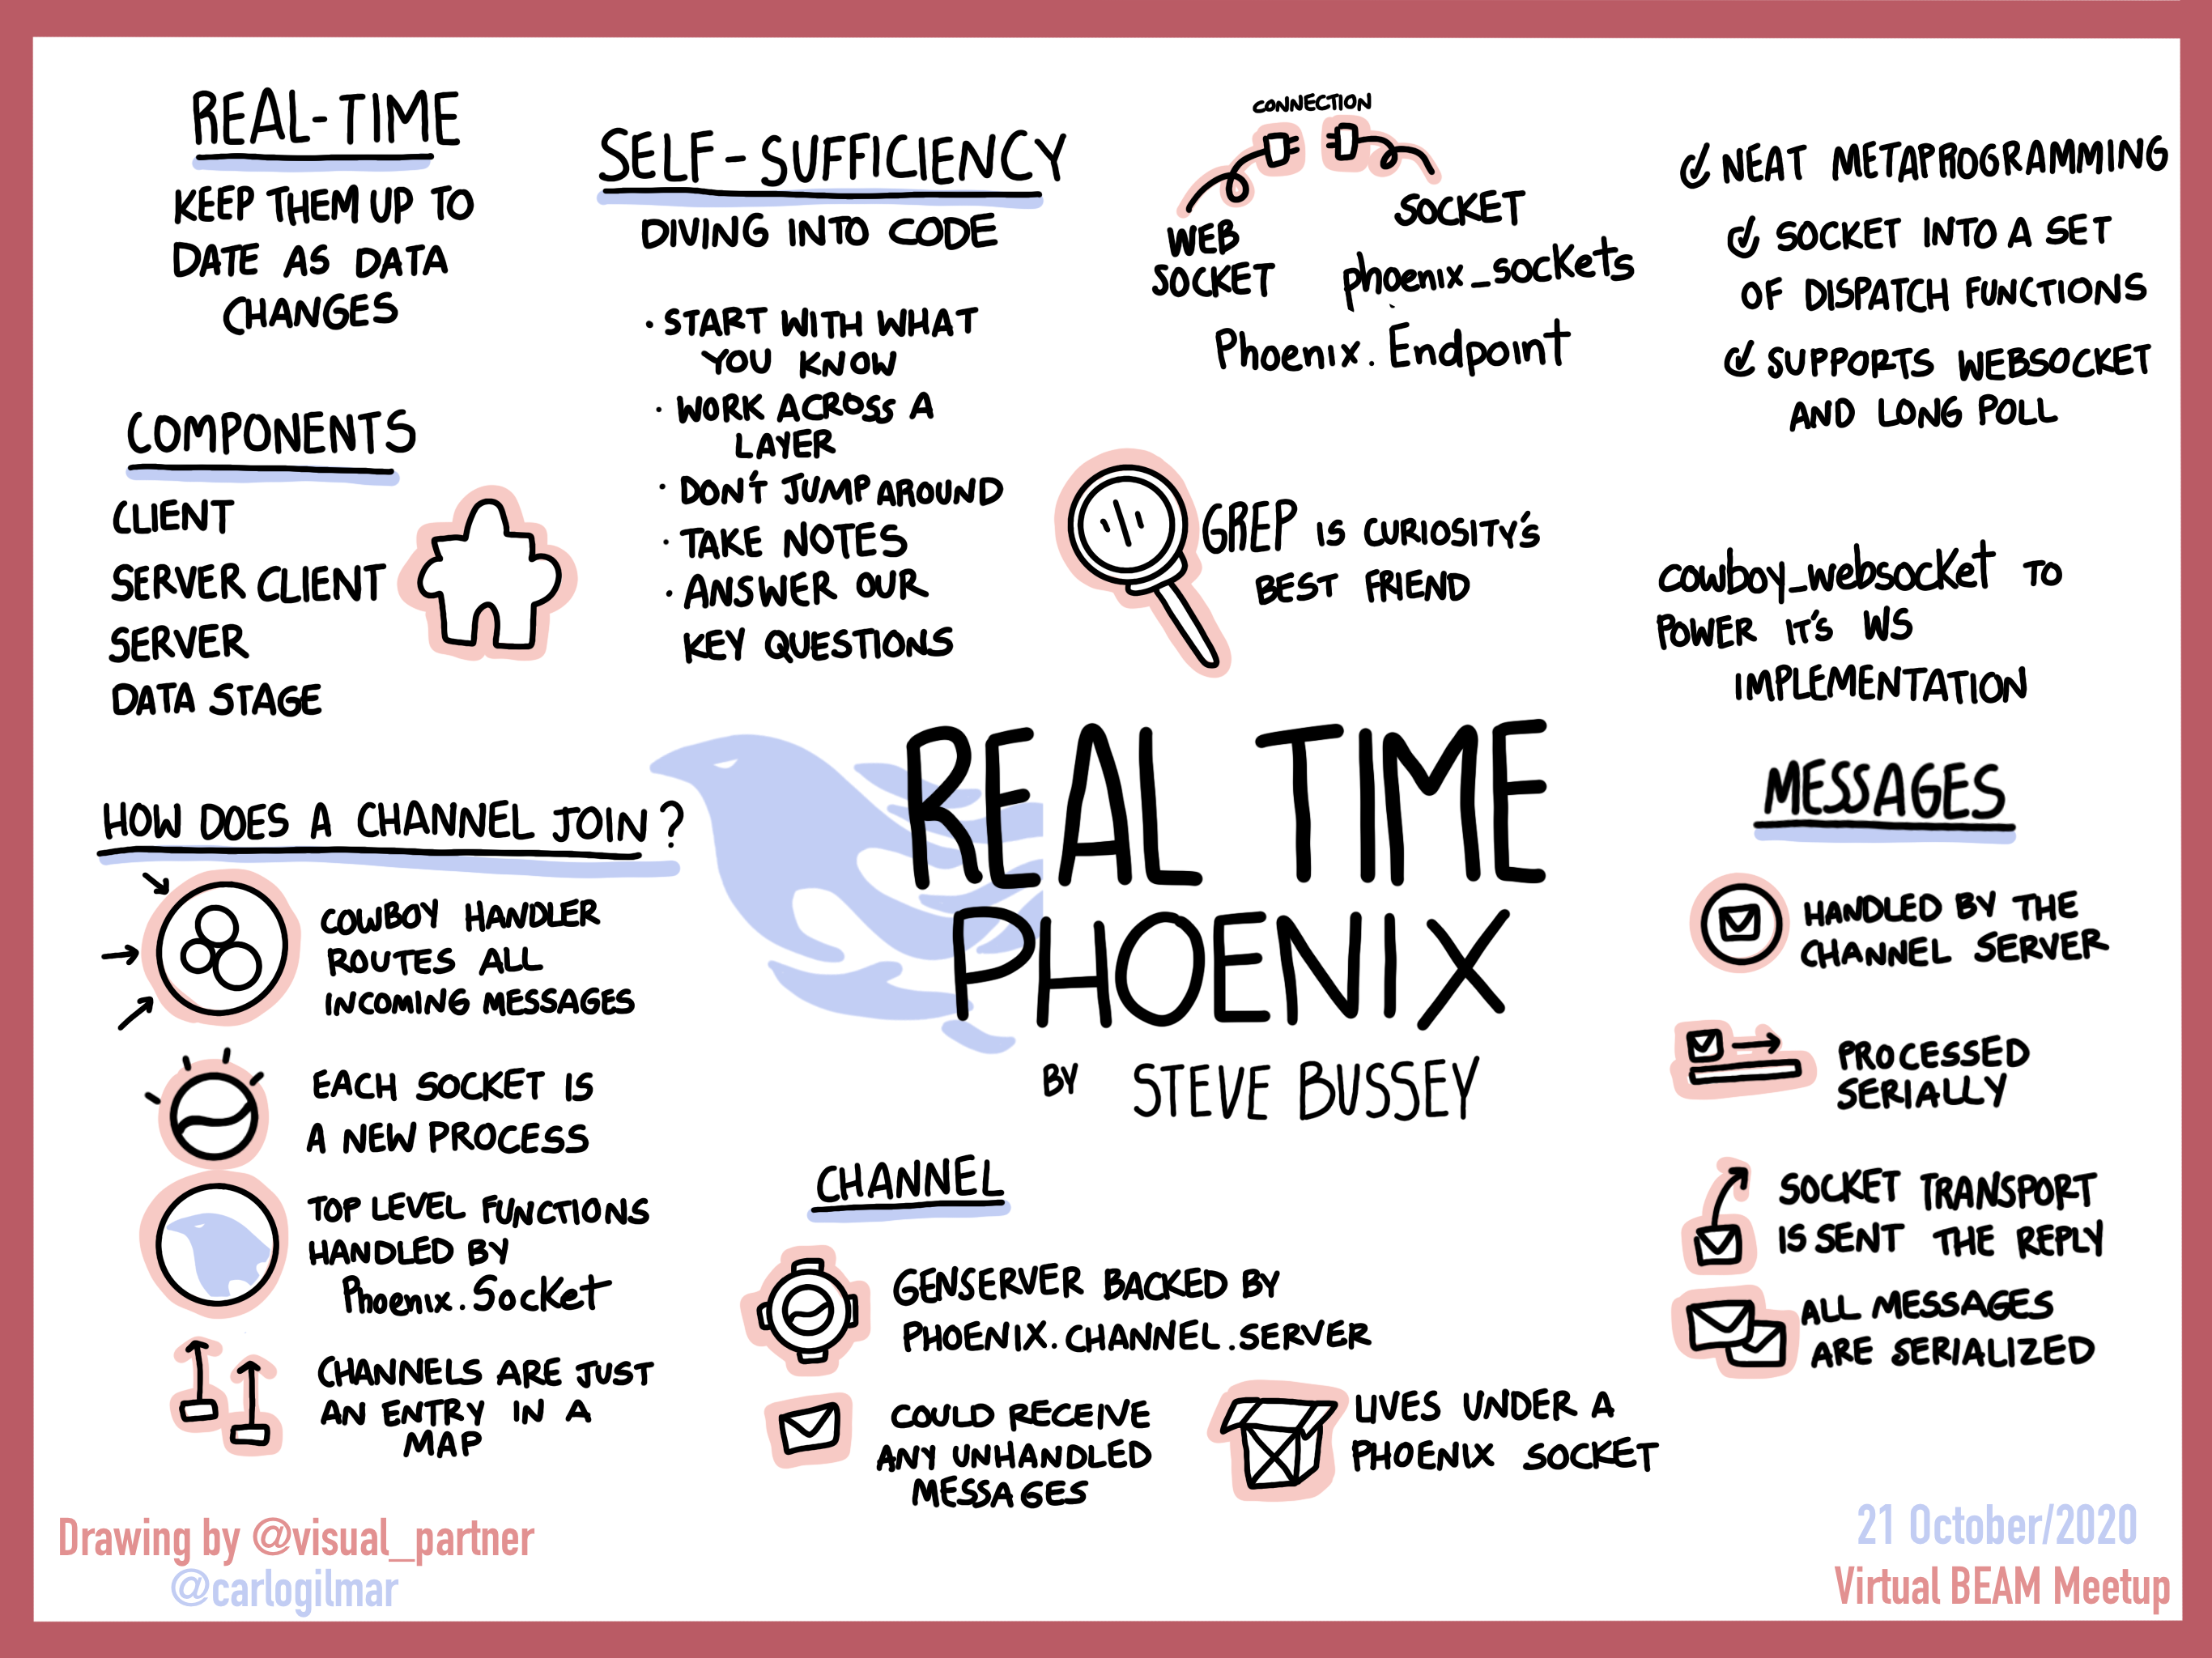 REAL-TIME
KEEP THEM UP TO
DATE AS DATA
CHANGES
COMPONENTS
CLIENT
SERVER CLIENT
SERVER
DATA STAGE
SELF-SUFFICIENCY
DIVING INTO CODE
· START WITH WHAT
YOU KNOW
· WORK ACROSS A
LAYER
· DON'T JUMP AROUND
· TAKE NOTES
· ANSWER OUR
KEY QUESTIONS
CONNECTION
WEB
SOCKET
SOCKET
phoenix_sockets
Phoenix.Endpoint
GREP IS CURIOSITY'S
BEST FRIEND
NEAT METAPROGRAMMING
SOCKET INTO A SET
OF DISPATCH FUNCTIONS
SUPPORTS WEBSOCKET
AND LONG POLL
cowboy_websocket TO
POWER IT'S WS
IMPLEMENTATION
REAL TIME
PHOENIX
BY STEVE BUSSEY
HOW DOES A CHANNEL JOIN?
COWBOY HANDLER
ROUTES ALL
INCOMING MESSAGES
EACH SOCKET IS
A NEW PROCESS
TOP LEVEL FUNCTIONS
HANDLED BY
Phoenix.Socket
CHANNELS ARE JUST
AN ENTRY IN A
MAP
CHANNEL
GENSERVER BACKED BY
PHOENIX.CHANNEL.SERVER
COULD RECEIVE
ANY UNHANDLED
MESSAGES
LIVES UNDER A
PHOENIX SOCKET
MESSAGES
HANDLED BY THE
CHANNEL SERVER
PROCESSED
SERIALLY
SOCKET TRANSPORT
IS SENT THE REPLY
ALL MESSAGES
ARE SERIALIZED
Drawing by @visual_partner
@carlogilmar
21 October/2020
Virtual BEAM Meetup